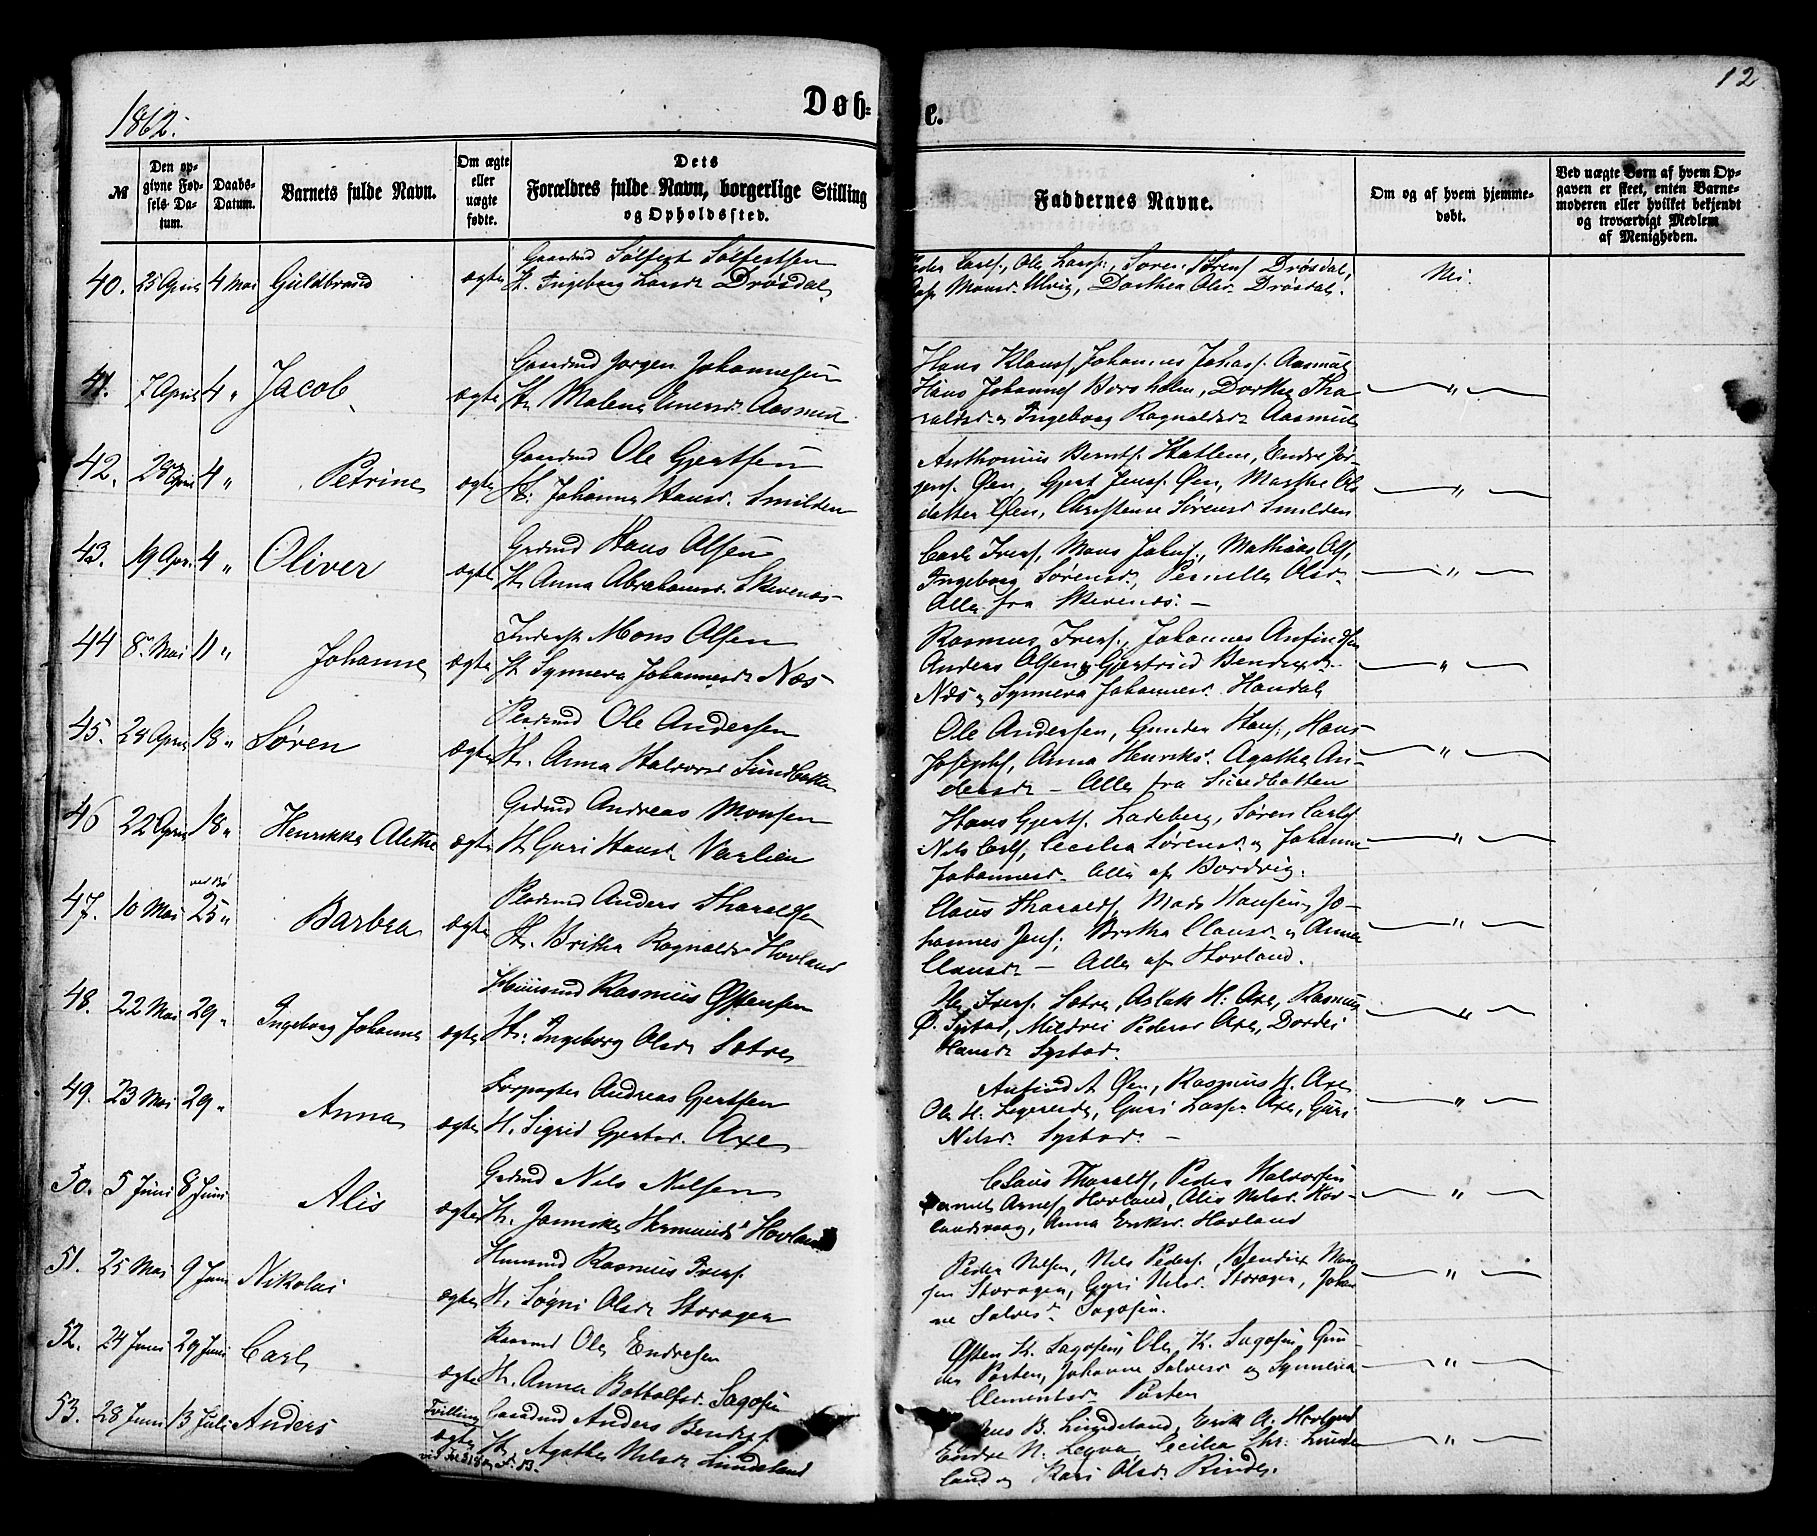 1862.
Døb-
e.
12
№
Den op-
givne Fød-
sels Da-
tum.
Daabs-
Datum.
Barnets fulde Navn.
Om ægte
eller
uægte
fødte.
Dets
Forældres fulde Navn, borgerlige Stilling
og Opholdssted.
Faddernes Navne.
Om og af hvem hjemme-
døbt.
Ved uægte Børn af hvem Op-
gaven er skeet, enten Barne-
moderen eller hvilket bekjendt
og troværdigt Medlem
af Menigheden.
40. 25 April 4 Mai Guldbrand ægte
Gaardmd Sølfest Sølfestsen
H. Ingeborg Larsdr Drøsdal
Peder Carls., Ole Larss., Søren Iverss Drøsdal,
Mons. Ulvig, Dorthea Olsdr Drøsdal.
Nei.
41. 7 April 4 " Jacob ægte
Gaardmd Jørgen Johannesen
H. Malene Einersdr Aasmul
Hans Klauss, Johannes Johanss. Aasmul
Hans Johannss Borsholm, Dorthe Tha-
raldsdr og Ingeborg Ragnaldsdr Aasmul
"
42. 28 April 4 " Petrine ægte
Gaardmd Ole Gjertsen
H. Johanna Hansdr. Smilden
Anthonius Berntss. Hatlem, Endre Jør-
genss. Øen, Gjert Jenss. Øen, Marthe Ols-
datter Øen, Christenne Sørensdr Smilden
"
43. 19 Apr. 4 " Oliver ægte
Grdmd Hans Olsen
H. Anna Abrahamsdr. Skivenæs
Carl Iverss, Mons Johnss., Mathias Ols,
Ingeborg Sørensdr., Pernille Olsdr
Alle fra Skivenæs. —
"
44 8. Mai 11 " Johanne ægte
Inderst Mons Olsen
H. Synneva Johannesdr Næs
Rasmus Iverss., Johannes Anfindsen
Anders Olsen og Gjertrud Bendixdr
Næs og Synneva Johannesdr. Handal
"
45. 24 April 18 " Søren ægte
Pladsmd Ole Andersen
H. Anna Halvorsdr Sundbotten
Ole Andersen, Gunder Hanss., Hans
Josephs, Anna Henriksdr. Agatha An-
dersdr — Alle fra Sundbotten
"
46 22 April 18 " Henrikka Alethe ægte
Grdmd Andreas Monsen
H. Guri Hansdr Varlien
Hans Gjertss. Ladeberg, Søren Carls
Nils Carls, Cecilia Sørensdr og Johanne
Johannesdr. Alle af Bordvig.
"
47. 10 Mai 25 " ved Bø Barbra ægte
Pladsmd Anders Tharaldsen
H. Britha Ragnaldsdr Hovland
Claus Tharalds, Mads Hansen, Jo-
hannes Jenss; Britha Clausdr og Anna
Clausdr — Alle af Hovland.
"
48. 22 Mai 29 " Ingeborg Johanne ægte
Huusmd Rasmus Østensen
H. Ingeborg Olsdr Sætre
Ole Iverss. Sætre, Aslak H. Axe, Rasmus
Ø. Systad, Mildrei Pedersdr Axe, Dordei
Hansdr Systad.
"
49. 23 Mai 29 " Anna ægte
Forpagter Andreas Gjertsen
H. Sigrid Gjertsdr. Axe
Anfind A Øen, Rasmus H. Axe
Ole H. Legreid, Guri Larsdr Axe, Guri
Nilsdr. Systad. —
"
50. 5 Juni 8 Juni Alis ægte
Grdmd Nils Nilsen
H. Jannike Hermundsdr Hovland
Claus Tharalds, Peder Halvorsen
Daniel Arness Hovland, Alis Nilsdr. Hov-
landsvaag, Anna Eriksdr. Hovland
"
51. 25 Mai 9 Juni Nikolai ægte
Huusmd Rasmus Iverss.
H. Søgni Olsdr Storagen
Peder Nilsen, Nils Pederss., Bendix Mon-
sen Storagen, Guri Nilsdr. Storagen, Johan-
ne Salvesdr Sagosen.
"
52. 24 Juni 29 Juni Carl ægte
Huusmd Ole Endresen
H. Anna Bottolfsdr. Sagosen
Østen K. Sagosen, Ole K. Sagosen, Gun-
der Porten, Johanne Salvesdr og Synneva
Clementsdr. Porten
"
53. 28 Juni 13 Juli Anders Tvilling ægte
Gaardmd Anders Bendixs
H. Agathe Nilsdr Lundeland
Jens B. Lundeland, Erik A. Hovland
Endre N. Legva, Cecilia Chr. Lunde-
land og Kari Olsdr Rinde.
"